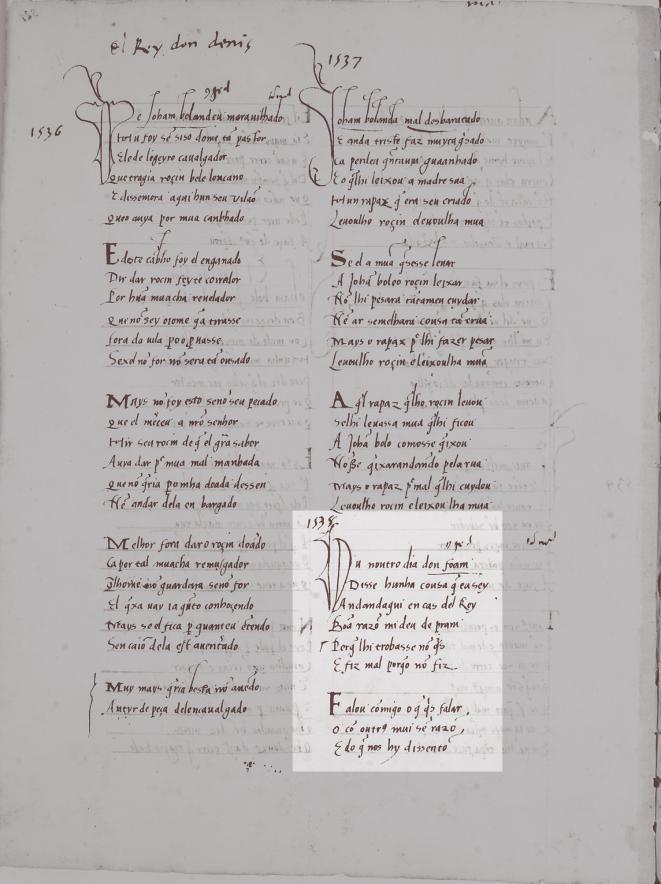 El Rey don denis
1536
De Joham bolandeu maravilhado
tal foy sē siso dome tā pastor
E ledo ligeyro cavalgador
Que tragia roçin belo loucano
E dissemora aqui hun seu vilão
Queo avya por mua cambhado
E deste cābho foy el enganado
Dir dar rocin feyte corredor
Por hūa muacha revelador
Que nō sey oiome q̄ a tirasse
fora da vila poo puasse
Sexel nō for nō sera tā ousado
Mays nō foy esto senō seu pecado
que el mēceu a nrō senhor
Hir seu rocin de q̄ el grā sabor
Avia dar p̄ mua mal manhada
Que nō q̄ria pomha doada dessen
Nē andar dela en bargado
Melhor fora dar o roçin doado
Ca por tal muacha remusgador
guardara senō for
El q̄ xa vay ia q̄uto conhoçendo
Mays se el fica p̄ quanteu ētendo
Sen caiō dela est aventado
Muy mays q̄ria besta nō avēdo
Antyr de pee delencavalgado
1537
Joham bolo anda mal desbaratado
E anda triste faz muyt aguisado
Ca perdeu q̄ntavya guaanhado
E o q̄ lhi leixou a madre sua
hun rapaz q̄ era seu criado
Levoulho roçin e leixoulha mua
Se el a mua q̄sesse levar
A Johā bolo eo roçin leixar
Nō lhi pesara tāto a meu cuydar
Nē ar semelhara cousa tā crua
Mays o rapax p̄ lhi fazer pesar
Levoulho roçin e leixoulha mua
A q̄l rapaz q̄ lho rocin levou
Selhi levassa mua q̄ lhi ficou
A Johā bolo comosse q̄ixou
Nō sse q̄ixarandando pela rua
Mays o rapaz p̄ mal q̄ lhi cuydou
Levoulho rocin e leixoulha mua
1538
Hu noutro dia don foam
Disse hunha cousa q̄ eu sey
Andandaqui en cas del Rey
Bōa razō mi deu de pram
Perq̄ lhi trobasse nō q̄s
E fiz mal porq̄o nō fiz
Falou comigo o q̄ q̄s falar,
E cō outrꝯ mui sē razō,
E do q̄ nos hy dissentō